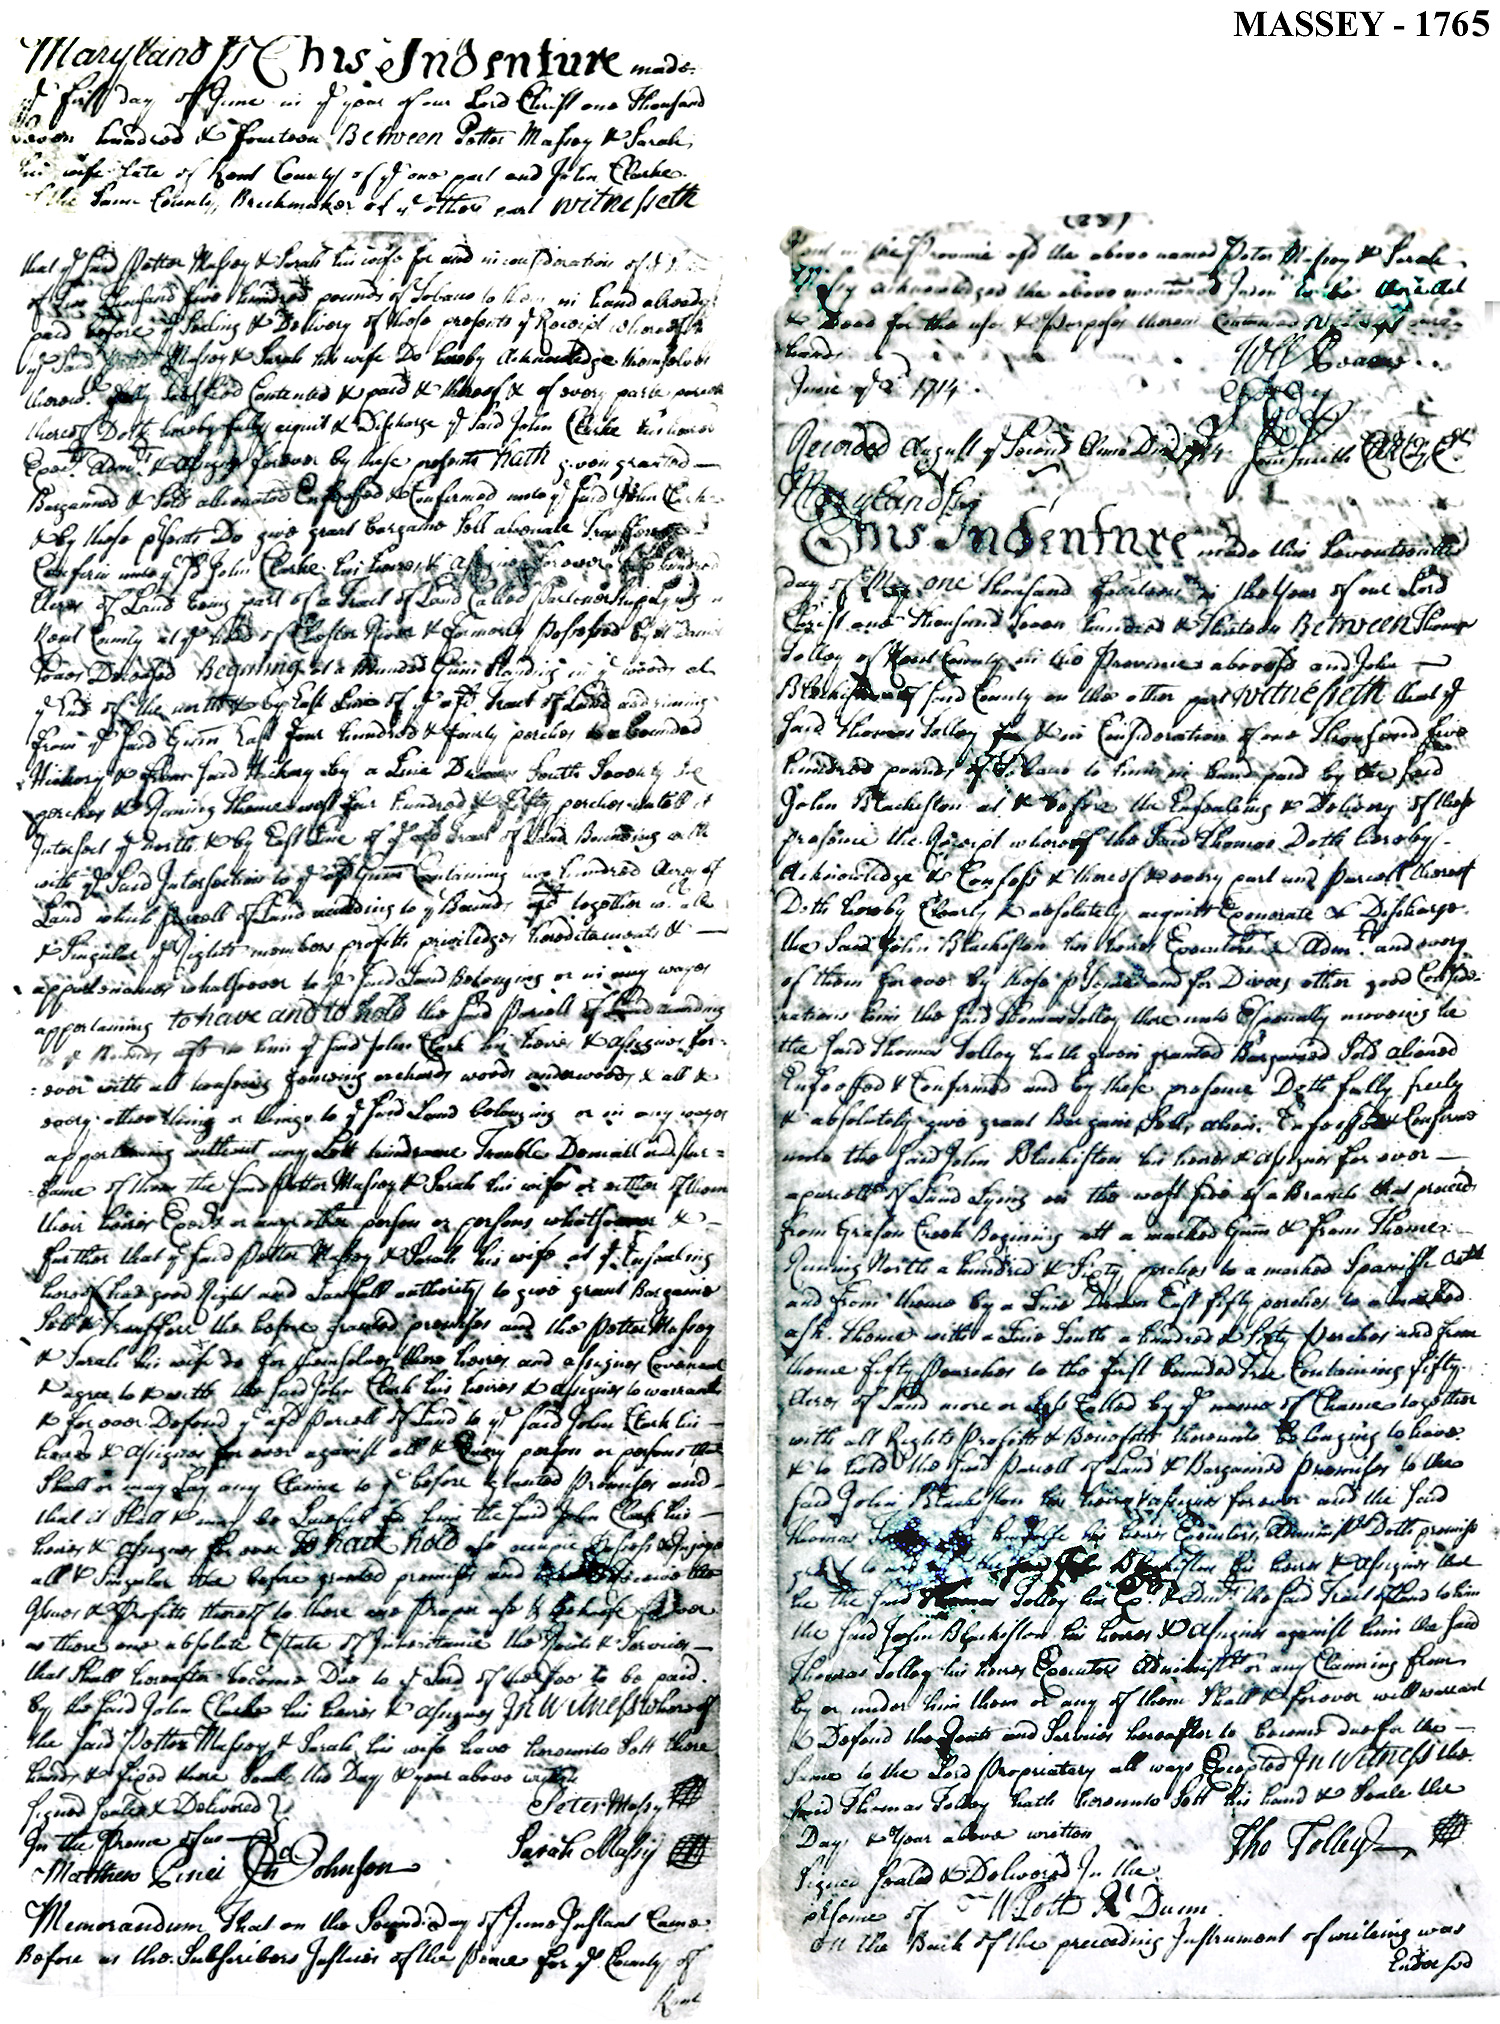 MASSEY - 1765
Maryland ss This Indenture made
ye first day of June in ye year of our Lord Christ one Thousand
Seven hundred & fourteen Between Petter Massey & Sarah
his wife late of Kent County of ye one part and John Clarke
of the Same County Brickmaker of ye other part Witnesseth
that ye Said Petter Massey & Sarah his wife for and in consideration of
of two Thousand five hundred pounds of Tobaco to them in hand already
paid before ye Sealing & Delivery of these presents ye Receipt whereof
ye Said Petter Massey & Sarah his wife Do hereby Acknowledge themselves
therewth fully Satisfied Contented & paid & thereof & of every parte
thereof Doth hereby fully aquit & Discharge ye Said John Clarke his heires
Execrs Admrs & Assignes forever by these presents hath given granted
Bargained & Sold alienated Enfeoffed & Confirmed unto ye Said John Clark
& by these psents Do give grant bargaine Sell alienate Transferr
Confirm unto ye sd John Clarke his heires & Assignes forever hundred
Acres of Land being part of a Tract of Land Called Partnership lying in
Kent County at ye head of Chester River & formerly Possessed by
Deceased Begining at a bounded Gum standing in ye woods at
ye End of the north & by East Line of ye afd Tract of Land and runing
from ye Said Gum East four hundred & fourty perches to a bounded
Hickory & from Said Hickory by a Line Drawn South Seventy
perches & Runing Thence west four hundred & fifty perches untill it
Intersect ye North & by East Line of ye afd Tract of Land Bounding
with ye Said Intersection to ye afd Gum Containing two hundred Acres of
Land which Parcell of Land according to ye Bounds afd together wth all
& Singular ye Rights members profitts priviledges hereditaments &
appurtenances whatsoever to ye Said Land Belonging or in any wayes
appertaining to have and to hold the Said Parcell of Land according
to ye Bounds afd to him ye Said John Clark his heires & Assignes for=
=ever with all houseing fenceing orchards woods underwoods & all &
every other thing or things to ye Said Land belonging or in any wayes
appertaining without any Lett hindrance Trouble Deniall
of them the Said Petter Massey & Sarah his wife or either of them
their heires Execrs or any other person or persons whatsoever &
further that ye Said Petter Massey & Sarah his wife at ye Ensealing
hereof had good Right and Lawfull authority to give grant Bargaine
Sell & Transferr the before granted premisses and the Petter Massey
& Sarah his wife do for themselves there heires and assignes Covenant
& agree to & with the Said John Clark his heires & Assignes to warrant
& for ever Defend ye afd Parcell of Land to ye Said John Clark his
heires & Assignes for ever against all & Every person or persons that
Shall or may Lay any Claime to ye before granted Premises and
that it Shall & may be Lawfull for him the Said John Clark his
heires & Assignes for ever To have hold use occupie Possess & Injoye
all & Singular the before granted premises and receive the
Issues & Profitts thereof to there one Proper use & behoofe for Ever
as there one absolute Estate of Inheritance the Rents & Services
that Shall hereafter become Due to ye Lord of the Fee to be paid
by the Said John Clarke his heires & Assignes In Witness whereof
the Said Petter Massey & Sarah his wife have hereunto Sett there
hands & fixed there Seals the Day & year above written
Signed Sealed & Delivered
In the Presence of us
Peter Massy
Sarah Massy
Matthew Johnson
Memorandum That on the Second Day of June Instant Came
Before us the Subscribers Justices of the Peace for ye County of
Kent
(23)
Kent in the Province afd the above named Peter Massey & Sarah
Massey acknowledged the above mentioned to be their
& Deed for the uses & Purposes therein Contained Witness our
hands
June ye 2d 1714
Recorded August ye Second Anno Dom 1714 Smith
Maryland ss
This Indenture made this Seventeenth
day of May one thousand in the Year of our Lord
Christ one Thousand Seven hundred & thirteen Between Thomas
Tolley of Kent County in the Province abovesd and John
Blackiston of said County on the other part Witnesseth that ye
Said Thomas Tolley for & in Consideration of one Thousand five
hundred pounds of Tobaco to him in hand paid by the Said
John Blackiston at & before the Ensealing & Delivery of these
presence the Receipt whereof the Said Thomas Doth hereby
Acknowledge & Confess & thereof & every part and Parcell thereof
Doth hereby Clearly & absolutely acquitt Exonerate & Discharge
the Said John Blackiston his heires Executors & Admrs and every
of them forever by these psence and for Divers other good Conside-
rations him the Said Thomas Tolley there unto Especially moveing he
the Said Thomas Tolley hath given granted Bargained Sold aliened
Enfeoffed & Confirmed and by these presence Doth fully freely
& absolutely give grant Bargain Sell alien Enfeoffe & Confirme
unto the Said John Blackiston his heires & Assignes for ever
a parcell of Land Lying on the west side of a Branch that proceeds
from Creek Begining att a marked Gum & from Thence
Runing North a hundred & Sixty perches to a marked Spanish Oak
and from thence by a Line Drawn East fifty perches to a marked
ash Thence with a Line South a hundred & Sixty Perches and from
thence fifty Pearches to the first bounded Tree Containing fifty
Acres of Land more or Less Called by ye name of Chance together
with all Rights Profitts & Benefitts thereunto belonging to have
& to hold the Said Parcell of Land & Bargained Premises to the
Said John Blackiston his heires & assignes forever and the Said
Thomas his heires Executors, Administrs Doth promise
to and the Said John Blackiston his heires & Assignes that
he the Said Thomas Tolley his Exrs & Admrs the Said Tract of Land to him
the Said John Blackiston his heires & Assignes against him the Said
Thomas Tolley his heires Executors Administrs or any Claiming from
by or under him them or any of them Shall & forever will warrant
& Defend the Rents and Services hereafter to become due for the
Same to the Lord Propriatary all ways Excepted In Witness the
Said Thomas Tolley hath hereunto Sett his hand & Seale the
Day & Year above written
Tho Tolley
Signed Sealed & Delivered In the
psence of Dunn
on the Back of the preceeding Instrument of writeing was
Endorsed